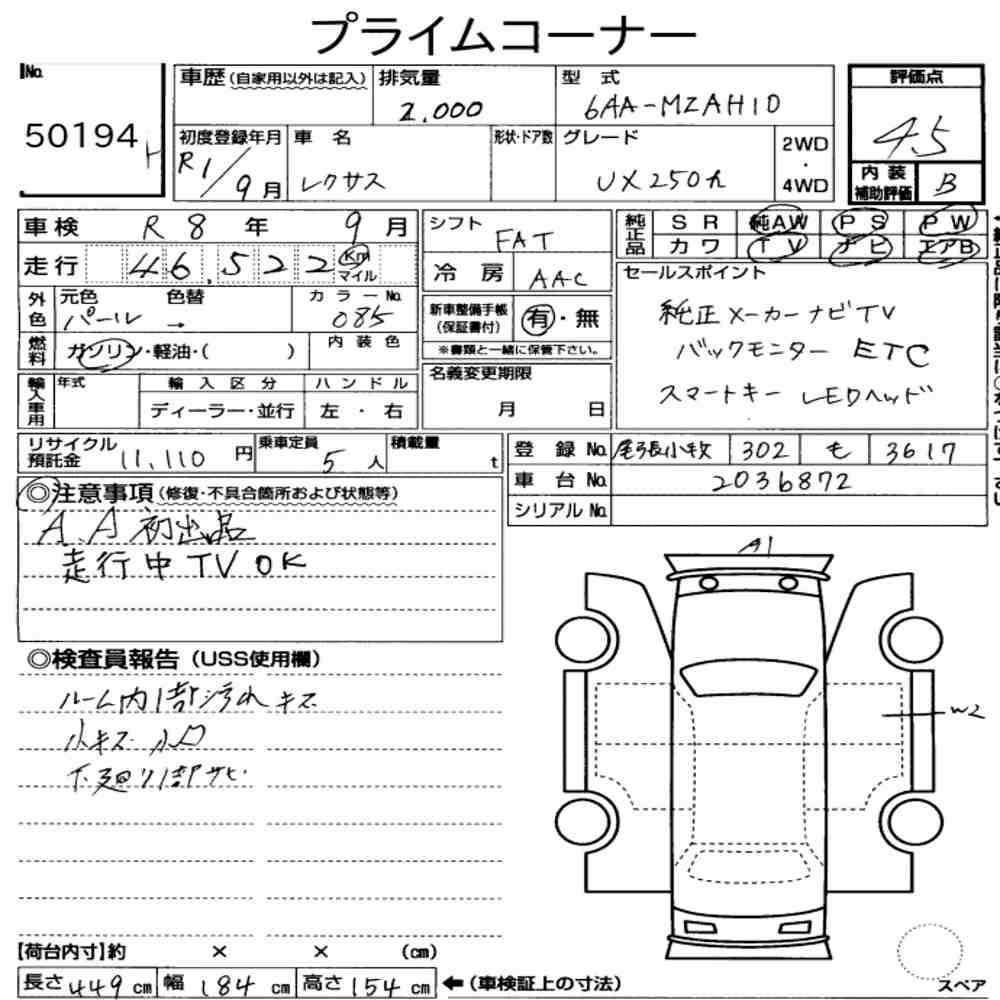 プライムコーナー
No. 50194
車歴(自家用以外は記入) 排気量 2,000 型式 6AA-MZAH10
評価点 4.5
内装補助評価 B
初度登録年月 R1/9月 車名 レクサス 形状・ドア数 グレード UX250h 2WD・4WD
車検 R8年 9月
走行 46,522 Km マイル
シフト FAT
冷房 AAC
純正品 SR 純AW PS PW
カワ TV ナビ エアB
外色 元色 パール 色替 → カラーNo. 085
燃料 ガソリン・軽油・( ) 内装色
新車整備手帳(保証書付) 有・無
※書類と一緒に保管下さい。
セールスポイント
純正メーカーナビTV
バックモニター ETC
スマートキー LEDヘッド
輸入車用 年式 輸入区分 ディーラー・並行 ハンドル 左・右
名義変更期限 月 日
リサイクル預託金 11,110円 乗車定員 5人 積載量 t
登録No. 尾張小牧 302 も 3617
車台No. 2036872
シリアルNo.
◎注意事項(修復・不具合箇所および状態等)
A.A初出品
走行中TV OK
◎検査員報告(USS使用欄)
ルーム内1部汚れ キズ
小キズ 小凹
下廻り1部サビ
A1
W2
【荷台内寸】約 × × (cm)
長さ449cm 幅184cm 高さ154cm ←(車検証上の寸法)
スペア